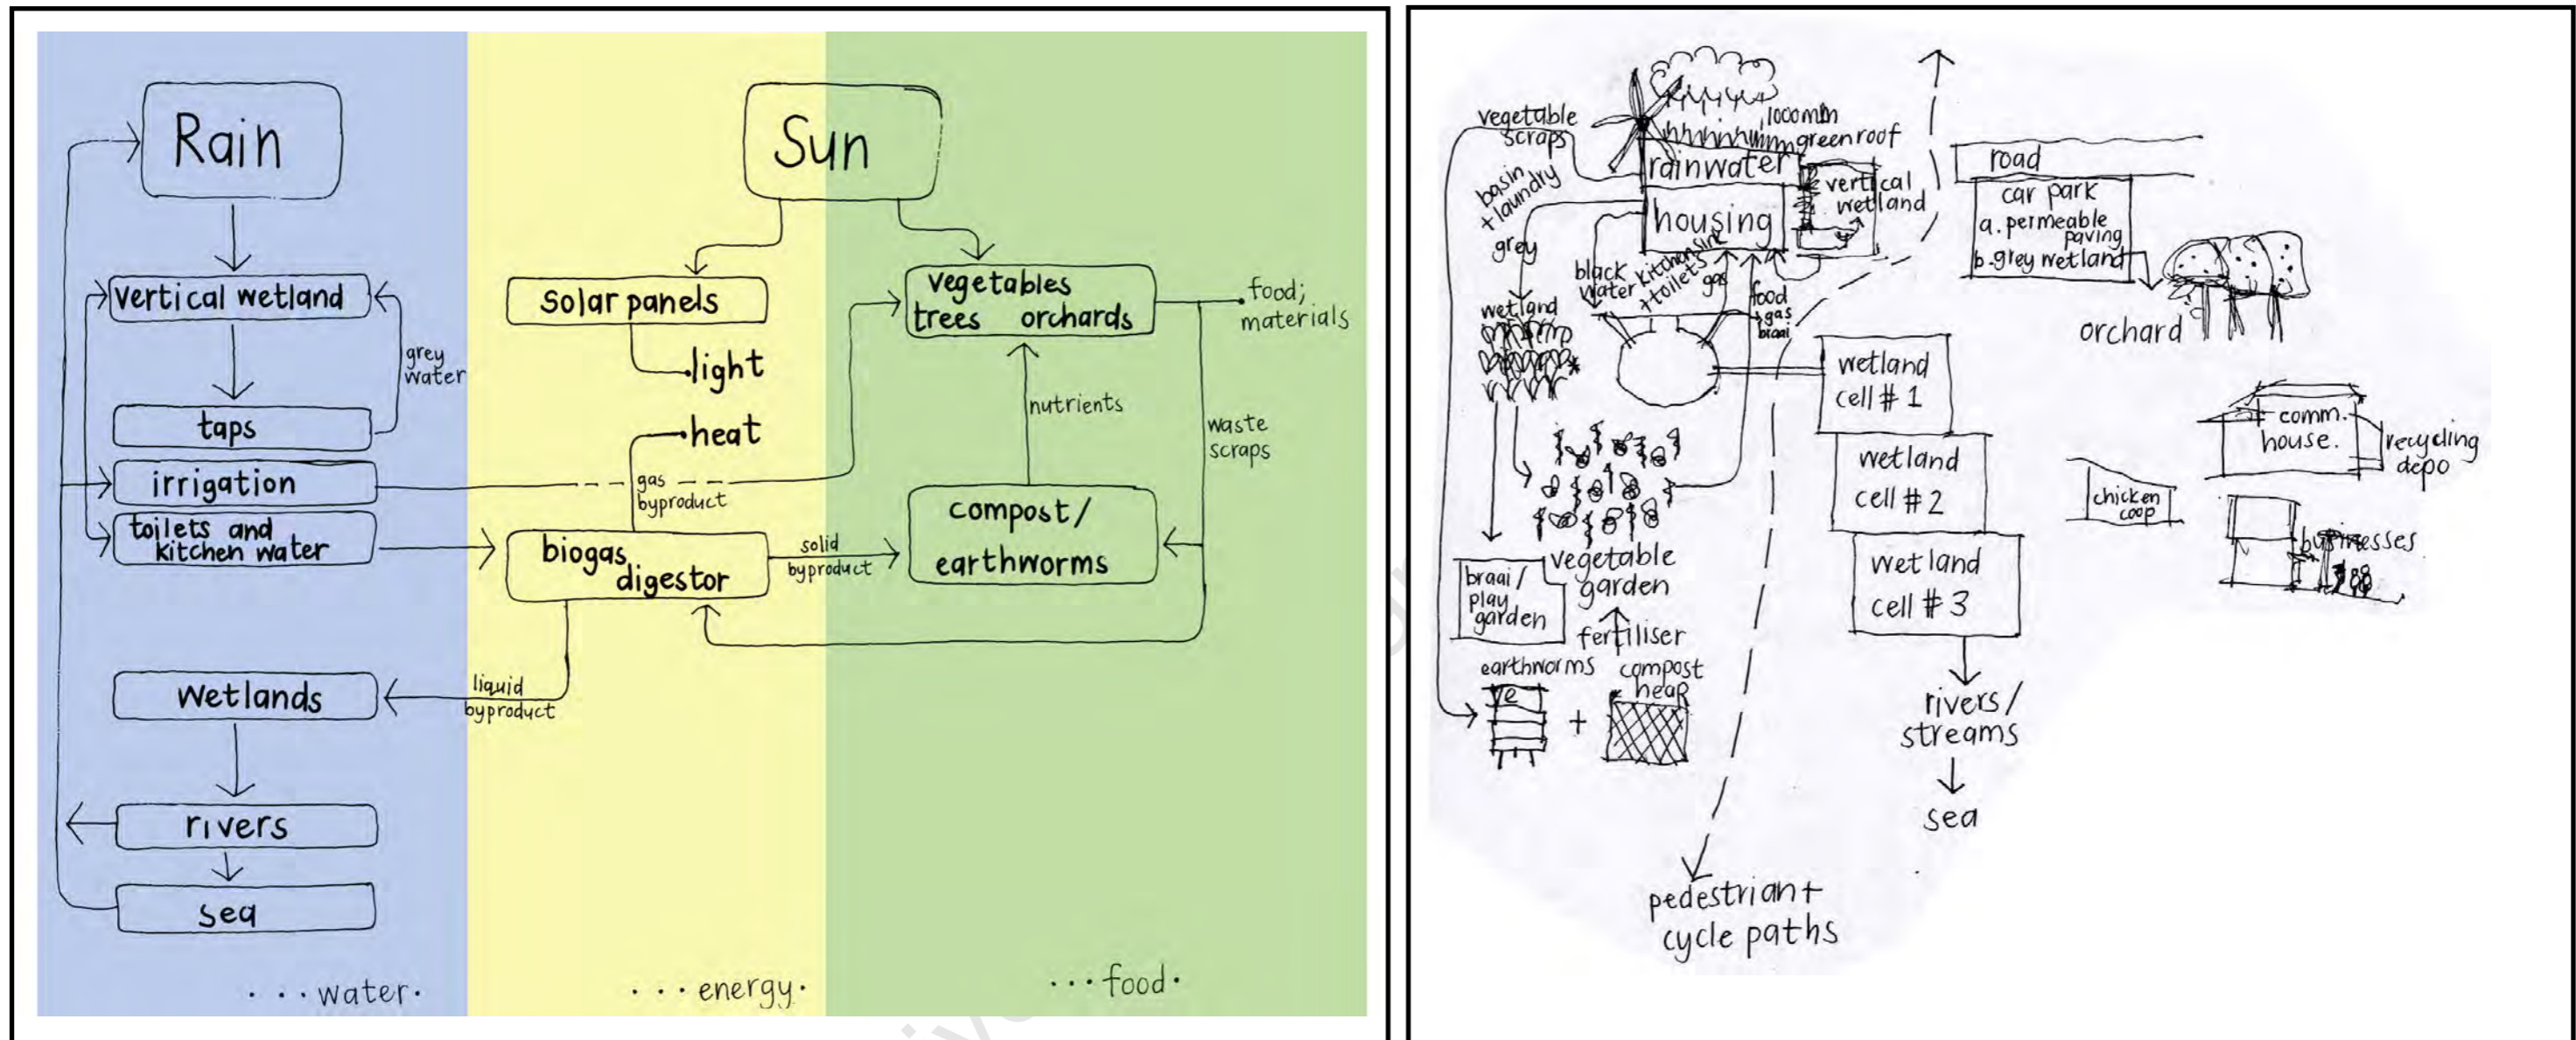 Rain
Sun
vertical wetland
grey
water
taps
irrigation
toilets and
kitchen water
wetlands
rivers
sea
solar panels
light
heat
gas
byproduct
biogas
digestor
solid
byproduct
liquid
byproduct
vegetables
trees orchards
food;
materials
nutrients
waste
scraps
compost/
earthworms
...water.
...energy.
...food.
vegetable
scraps
1000mm
greenroof
rainwater
basin
+ laundry
grey
housing
vertical
wetland
black
water
kitchen sink
+ toilets
gas
food
gas
braai
wetland
road
car park
a. permeable
paving
b. grey wetland
orchard
wetland
cell # 1
wetland
cell # 2
wetland
cell # 3
rivers/
streams
sea
comm.
house.
recycling
depo
chicken
coop
businesses
vegetable
garden
braai/
play
garden
fertiliser
earthworms
compost
heap
+
pedestrian +
cycle paths